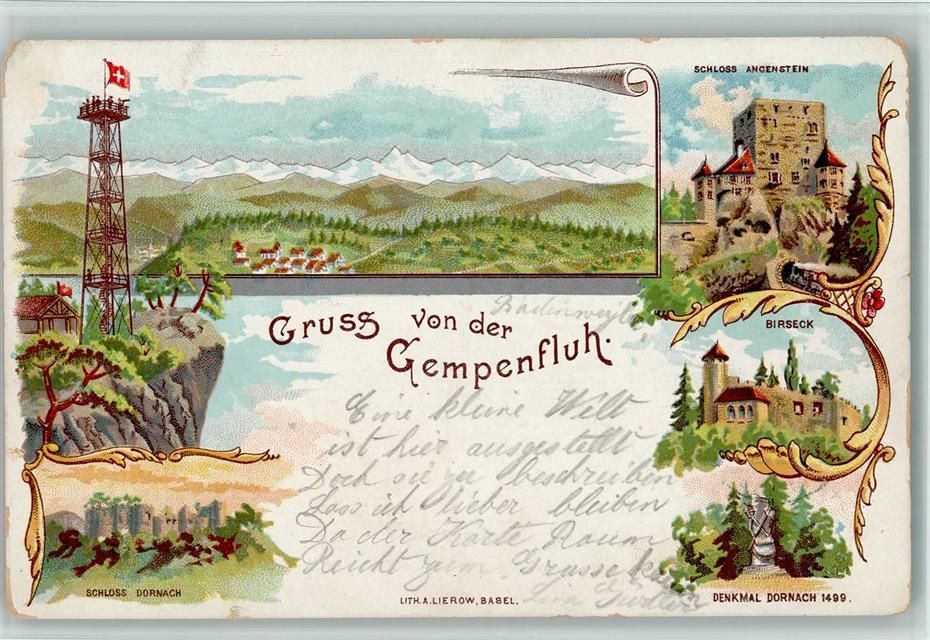 SCHLOSS ANGENSTEIN
Badenweiler
Gruss von der
Gempenfluh.
BIRSECK
Eine kleine Welt
ist hier ausgestellt
Doch sie zu beschreiben
Lass ich lieber bleiben
Da der Karte Raum
Reicht zum Grusse kaum
Lina
SCHLOSS DORNACH
LITH. A. LIEROW, BASEL.
DENKMAL DORNACH 1499.